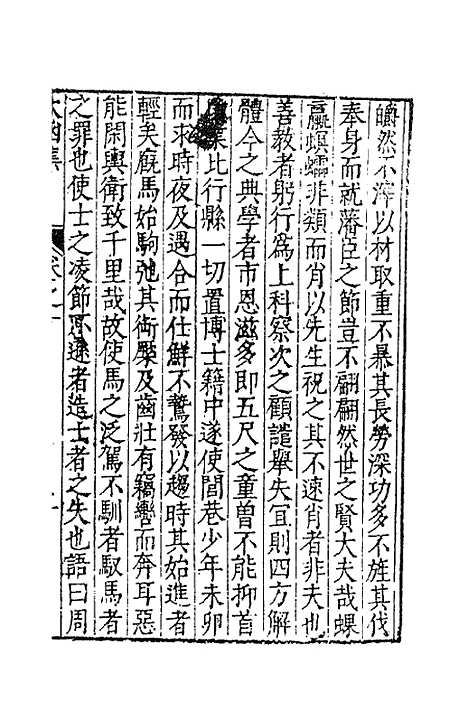 皭然不滓以材取重不暴其長勞深功多不旌其伐
奉身而就藩臣之節豈不翩翩然世之賢大夫哉蜾
蠃螟蠕非類而肖以先生祝之其不速肖者非夫也
善教者躬行為上科察次之顧譴舉失宜則四方解
體今之典學者市恩滋多即五尺之童曾不能抑首
業比行縣一切置博士籍中遂使閭巷少年未卵
而求時夜及遇合而仕鮮不驚發以趨時其始進者
輕矣廐馬始駒弛其銜橜及齒壯有竊轡而奔耳惡
能閑輿衛致千里哉故使馬之泛駕不馴者馭馬者
之罪也使士之凌節不遜者造士者之失也語曰周
太函集
卷之